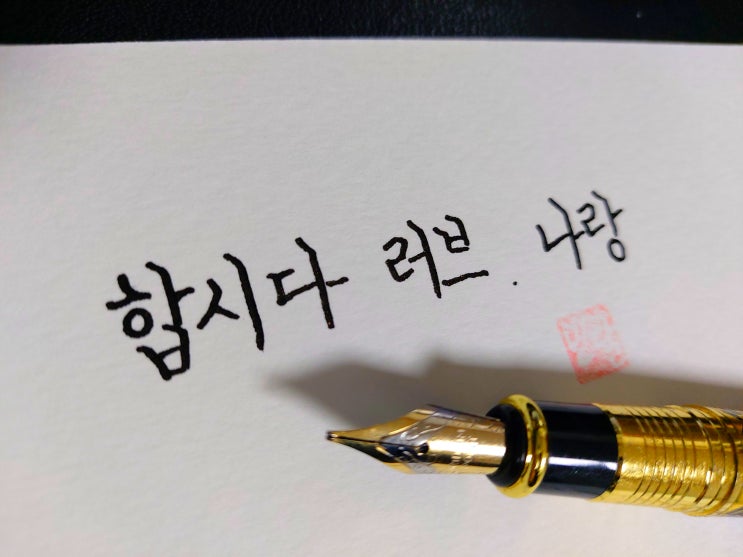 합시다 러브. 나랑